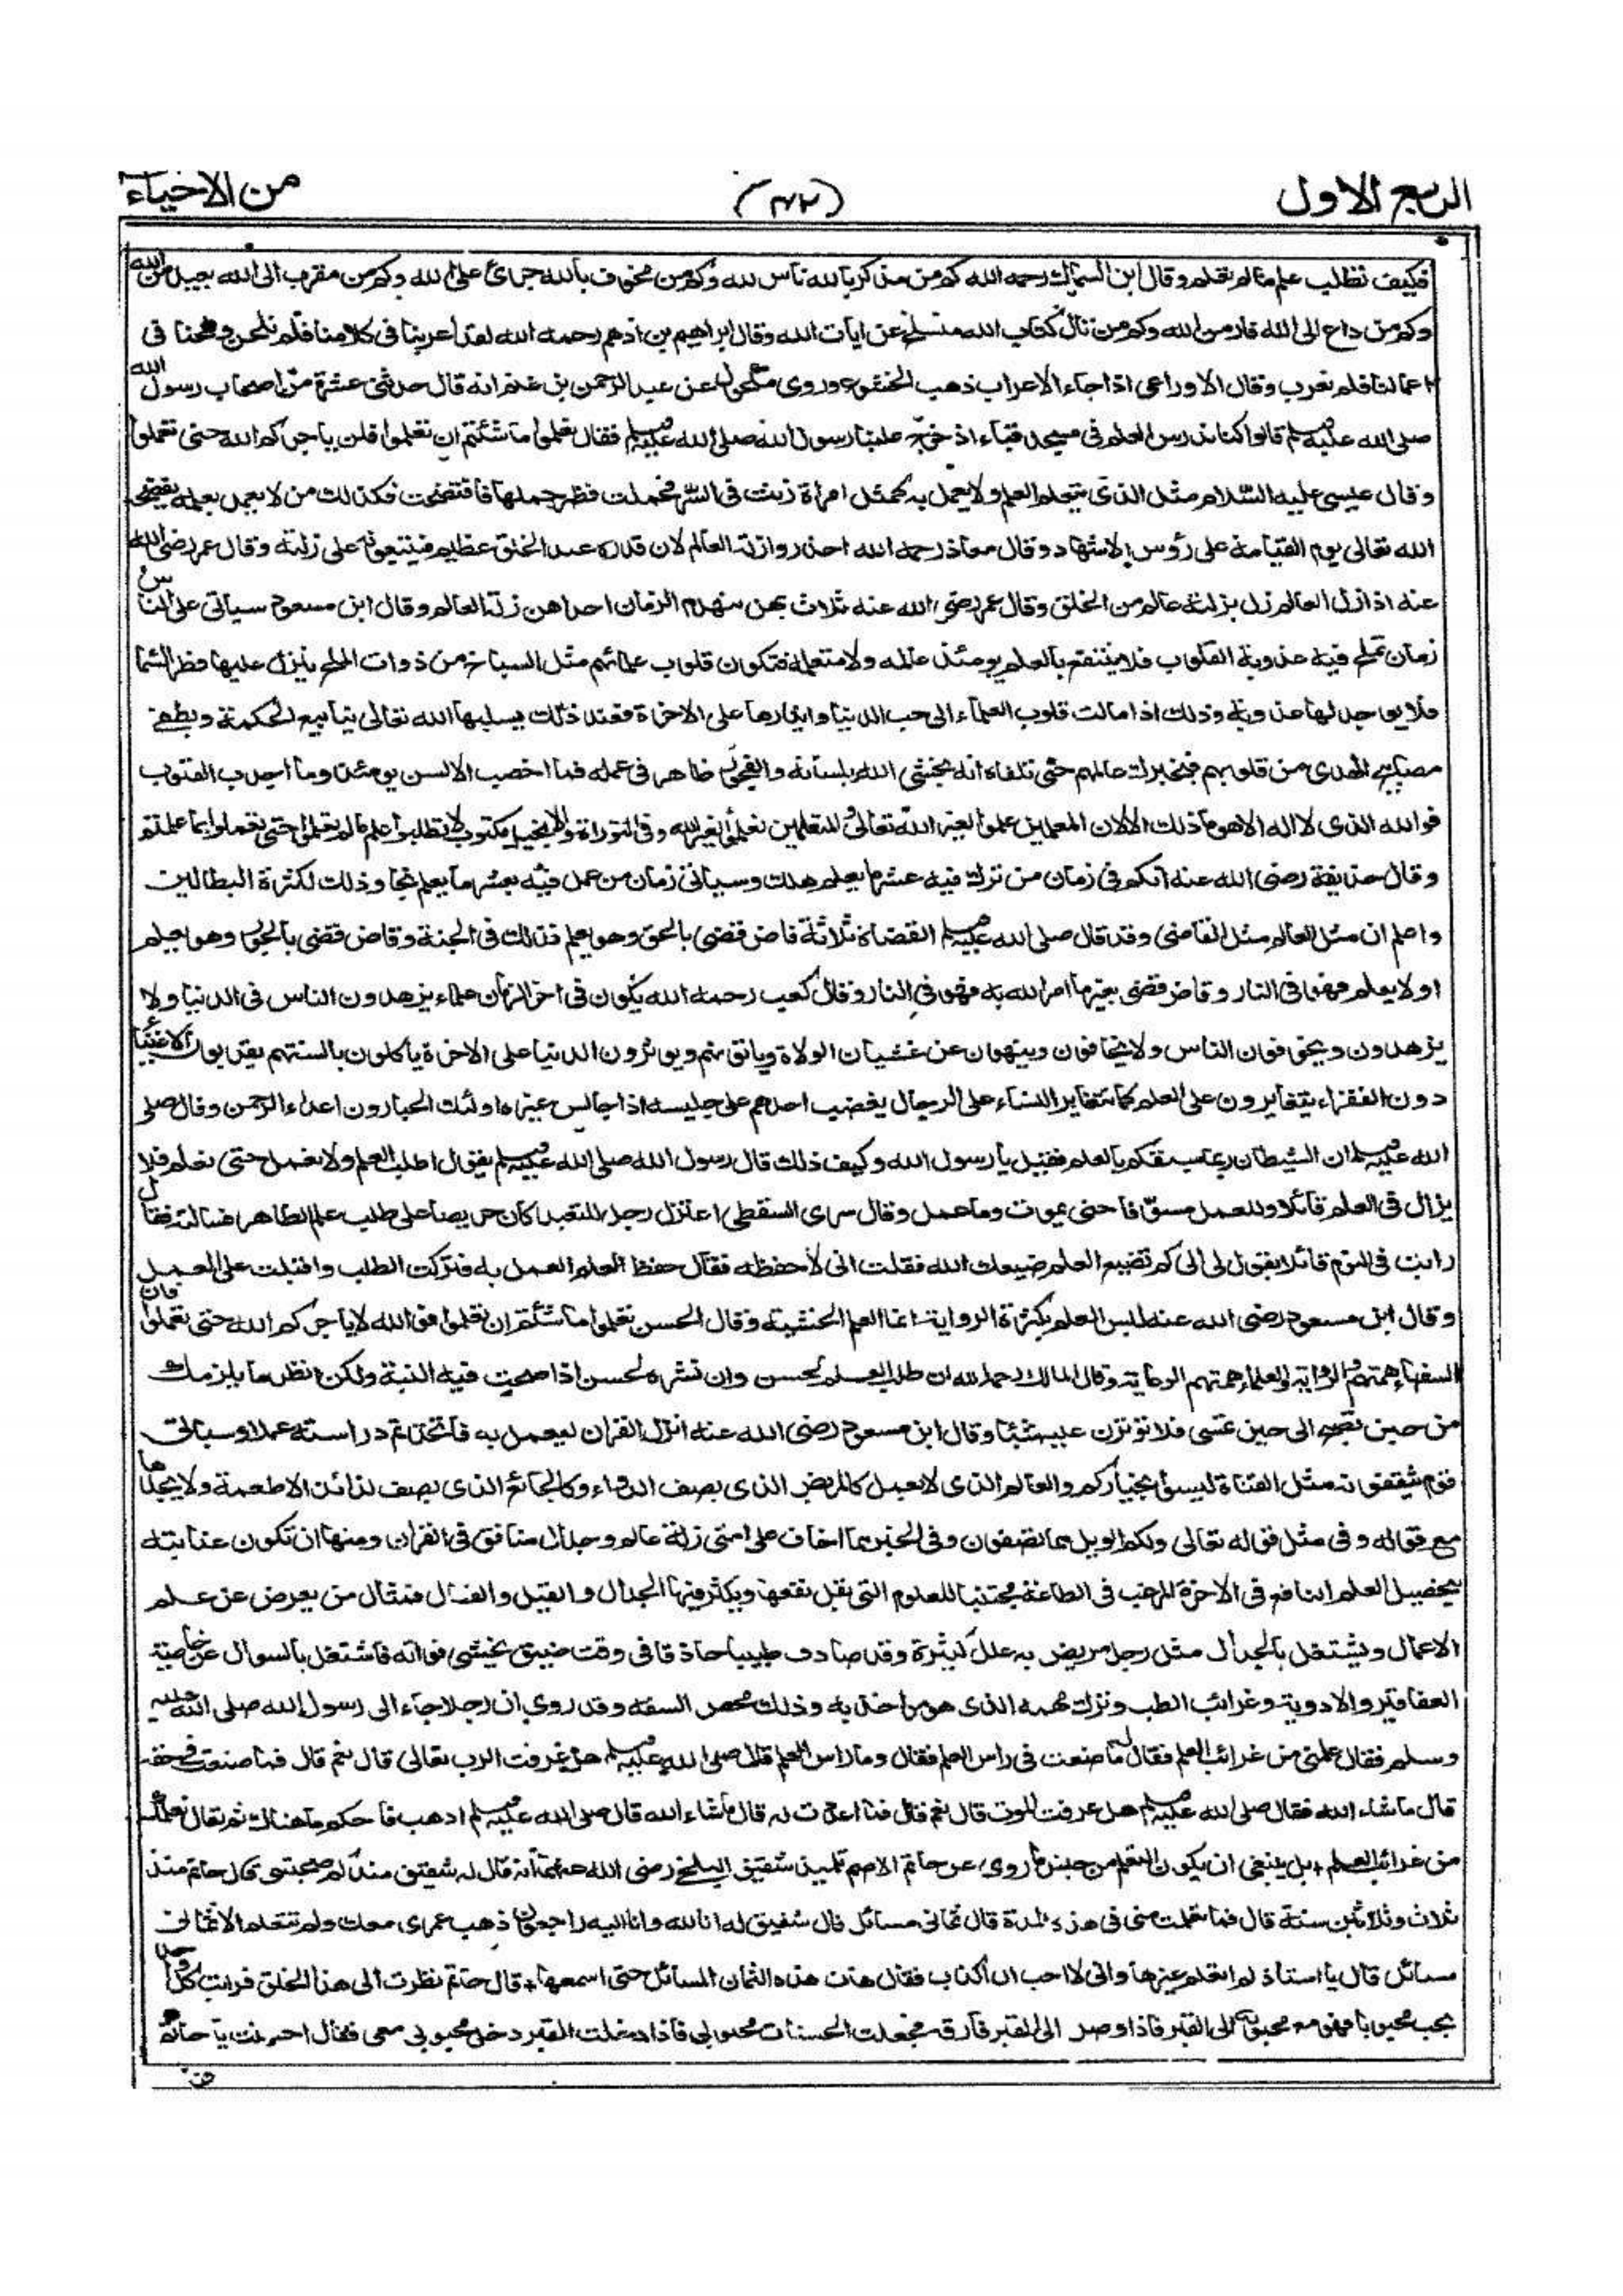 الربع الاول
(٤٢)
من الاحياء
فكيف تطلب علم ما لم تعلم وقال ابن السماك رحمه الله كم من مذكر بالله ناس لله وكم من مخوف بالله جرائ على الله وكم من مقرب الى الله بعيد من الله
وكم من داع الى الله فار من الله وكم من تال كتاب الله منسلخ عن ايات الله وقال ابراهيم بن ادهم رحمه الله لقد اعربنا فى كلامنا فلم نلحن ولحنا فى
اعمالنا فلم نعرب وقال الاوزاعى اذا جاء الاعراب ذهب الخشوع وروى مكحول عن عبد الرحمن بن غنم انه قال حدثنى عشرة من اصحاب رسول الله
صلى الله عليه وسلم قالوا كنا ندرس العلم فى مسجد قباء اذ خرج علينا رسول الله صلى الله عليه وسلم فقال تعلموا ما شئتم ان تعلموا فلن ياجركم الله حتى تعملوا
وقال عيسى عليه السلام مثل الذى يتعلم العلم ولا يعمل به كمثل امراة زنت فى السر فحملت فظهر حملها فافتضحت فكذلك من لا يعمل بعلمه يفضحه
الله تعالى يوم القيامة على رؤس الاشهاد وقال معاذ رحمه الله احذروا زلة العالم لان قدره عند الخلق عظيم فيتبعونه على زلته وقال عمر رضى الله
عنه اذا زل العالم زل بزلته عالم من الخلق وقال عمر رضى الله عنه ثلاث بهن ينهدم الزمان احداهن زلة العالم وقال ابن مسعود سياتى على الناس
زمان تملح فيه عذوبة القلوب فلا ينتفع بالعلم يومئذ عالمه ولا متعلمه فتكون قلوب علمائهم مثل السباخ من ذوات الملح ينزل عليها قطر السما
فلا يوجد لها عذوبة وذلك اذا مالت قلوب العلماء الى حب الدنيا وايثارها على الاخرة فعند ذلك يسلبها الله تعالى ينابيع الحكمة ويطفئ
مصابيح الهدى من قلوبهم فيخبرك عالمهم حتى تلقاه انه يخشى الله بلسانه والفجور ظاهر فى عمله فما اخصب الالسن يومئذ وما اجدب القلوب
فوالله الذى لا اله الا هو ما ذلك الا لان المعلمين علموا لغير الله تعالى والمتعلمين تعلموا لغير الله وفى التوراة والانجيل مكتوب لا تطلبوا علم ما لم تعلموا حتى تعملوا بما علمتم
وقال حذيفة رضى الله عنه انكم فى زمان من ترك فيه عشر ما يعلم هلك وسياتى زمان من عمل فيه بعشر ما يعلم نجا وذلك لكثرة البطالين
واعلم ان مثل العالم مثل القاضى وقد قال صلى الله عليه وسلم القضاة ثلاثة قاض قضى بالحق وهو يعلم فذلك فى الجنة وقاض قضى بالجور وهو يعلم
او لا يعلم فهو فى النار وقاض قضى بغير ما امر الله به فهو فى النار وقال كعب رحمه الله يكون فى اخر الزمان علماء يزهدون الناس فى الدنيا ولا
يزهدون ويخوفون الناس ولا يخافون وينهون عن غشيان الولاة وياتونهم ويوثرون الدنيا على الاخرة ياكلون بالسنتهم يقربون الاغنياء
دون الفقراء يتغايرون على العلم كما تتغاير النساء على الرجال يغضب احدهم على جليسه اذا جالس غيره اولئك الجبارون اعداء الرحمن وقال صلى
الله عليه وسلم ان الشيطان ربما يسبقكم بالعلم فقيل يا رسول الله وكيف ذلك قال رسول الله صلى الله عليه وسلم يقول اطلب العلم ولا تعمل حتى تعلم فلا
يزال فى العلم قائلا وللعمل مسوفا حتى يموت وما عمل وقال سرى السقطى اعتزل رجل للتعبد كان حريصا على طلب علم الظاهر فسالته فقال
رايت فى النوم قائلا يقول لى الى كم تضيع العلم ضيعك الله فقلت انى لاحفظه فقال حفظ العلم العمل به فتركت الطلب واقبلت على العمل
وقال ابن مسعود رضى الله عنه ليس العلم بكثرة الرواية انما العلم الخشية وقال الحسن تعلموا ما شئتم ان تعلموا فوالله لا ياجركم الله حتى تعملوا فان
السفهاء همتهم الرواية والعلماء همتهم الرعاية وقال مالك رحمه الله ان طلب العلم لحسن وان نشره لحسن اذا صحت فيه النية ولكن انظر ما يلزمك
من حين تصبح الى حين تمسى فلا توثرن عليه شيئا وقال ابن مسعود رضى الله عنه انزل القران ليعمل به فاتخذتم دراسته عملا وسياتى
قوم يثقفونه مثل القناة ليسوا بخياركم والعالم الذى لا يعمل كالمريض الذى يصف الدواء وكالجائع الذى يصف لذائذ الاطعمة ولا يجدها
مع قوله وفى مثل قوله تعالى ولكم الويل مما تصفون وفى الخبر مما اخاف على امتى زلة عالم وجدال منافق فى القران ومنها ان تكون عنايته
بتحصيل العلم النافع فى الاخرة المرغب فى الطاعة مجتنبا للعلوم التى يقل نفعها ويكثر فيها الجدال والقيل والقال فمثال من يعرض عن علم
الاعمال ويشتغل بالجدال مثل رجل مريض به علل كثيرة وقد صادف طبيبا حاذقا فى وقت ضيق يخشى فواته فاشتغل بالسوال عن خاصية
العقاقير والادوية وغرائب الطب وترك مهمه الذى هو مواخذ به وذلك محض السفه وقد روى ان رجلا جاء الى رسول الله صلى الله عليه
وسلم فقال علمنى من غرائب العلم فقال له ما صنعت فى راس العلم فقال وما راس العلم قال صلى الله عليه وسلم هل عرفت الرب تعالى قال نعم قال فما صنعت فى حقه
قال ما شاء الله فقال صلى الله عليه وسلم هل عرفت الموت قال نعم قال فما اعددت له قال ما شاء الله قال صلى الله عليه وسلم اذهب فاحكم ما هناك ثم تعال نعلمك
من غرائب العلم بل ينبغى ان يكون التعلم من جنس ما روى عن حاتم الاصم تلميذ شقيق البلخى رضى الله عنهما انه قال له شقيق منذ كم صحبتنى قال حاتم منذ
ثلاث وثلاثين سنة قال فما تعلمت منى فى هذه المدة قال ثمانى مسائل قال شقيق له انا لله وانا اليه راجعون ذهب عمرى معك ولم تتعلم الا ثمانى
مسائل قال يا استاذ لم اتعلم غيرها وانى لا احب ان اكذب فقال هات هذه الثمان المسائل حتى اسمعها قال حاتم نظرت الى هذا الخلق فرايت كل واحد
يحب محبوبا فهو مع محبوبه الى القبر فاذا وصل الى القبر فارقه فجعلت الحسنات محبوبى فاذا دخلت القبر دخل محبوبى معى فقال احسنت يا حاتم